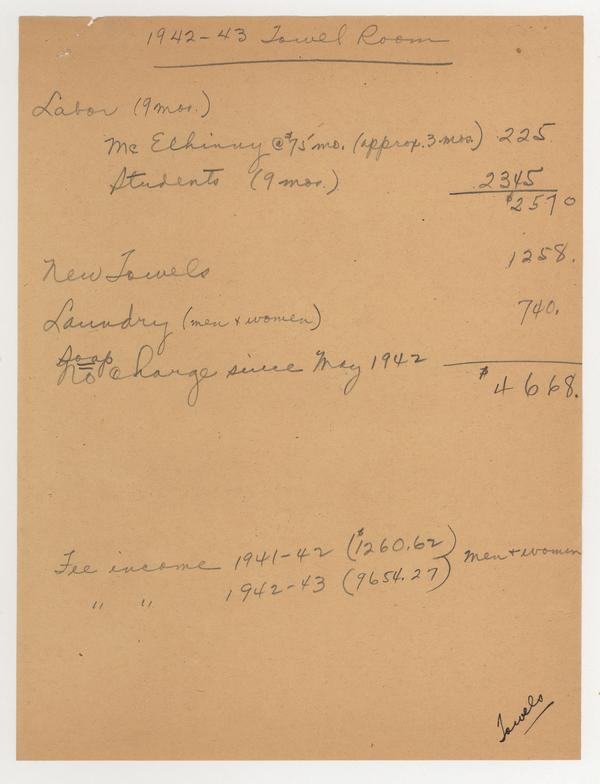 1942-43 Towel Room
Labor (9 mos.)
Mc Elhinny @ $75 mo. (approx. 3 mos) 225
Students (9 mos.) 2345
$2570
New Towels 1258.
Laundry (men & women) 740.
Soap
No charge since May 1942
$4668.
Fee income 1941-42 ($1260.62)
" " 1942-43 (9654.27) men & women
Towels